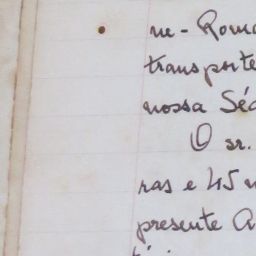 ne - Roma
transporte
nossa Séd
O sr.
ras e 45 m
presente A